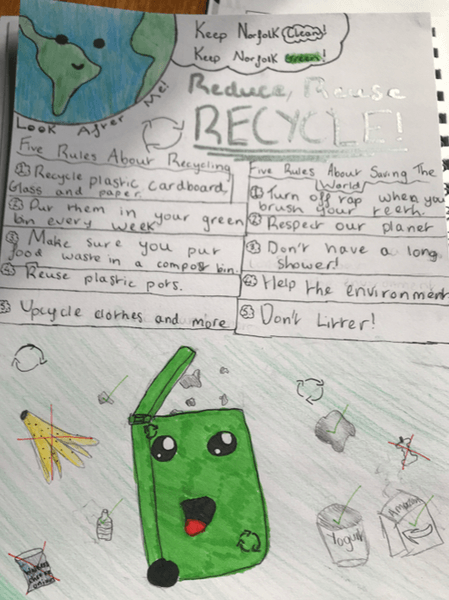 Keep Norfolk Clean!
Keep Norfolk Green!
Reduce, Reuse
RECYCLE!
Look After Me!
Five Rules About Recycling
1. Recycle plastic cardboard,
Glass and paper.
2. Put them in your green
bin every week
3. Make sure you put
food waste in a compost bin.
4. Reuse plastic pots.
5. Upcycle clothes and more
Five Rules About Saving The
World
1. Turn off tap when you
brush your teeth.
2. Respect our planet
3. Don't have a long
shower!
4. Help the environment
5. Don't Litter!
Yogurt
Amazon